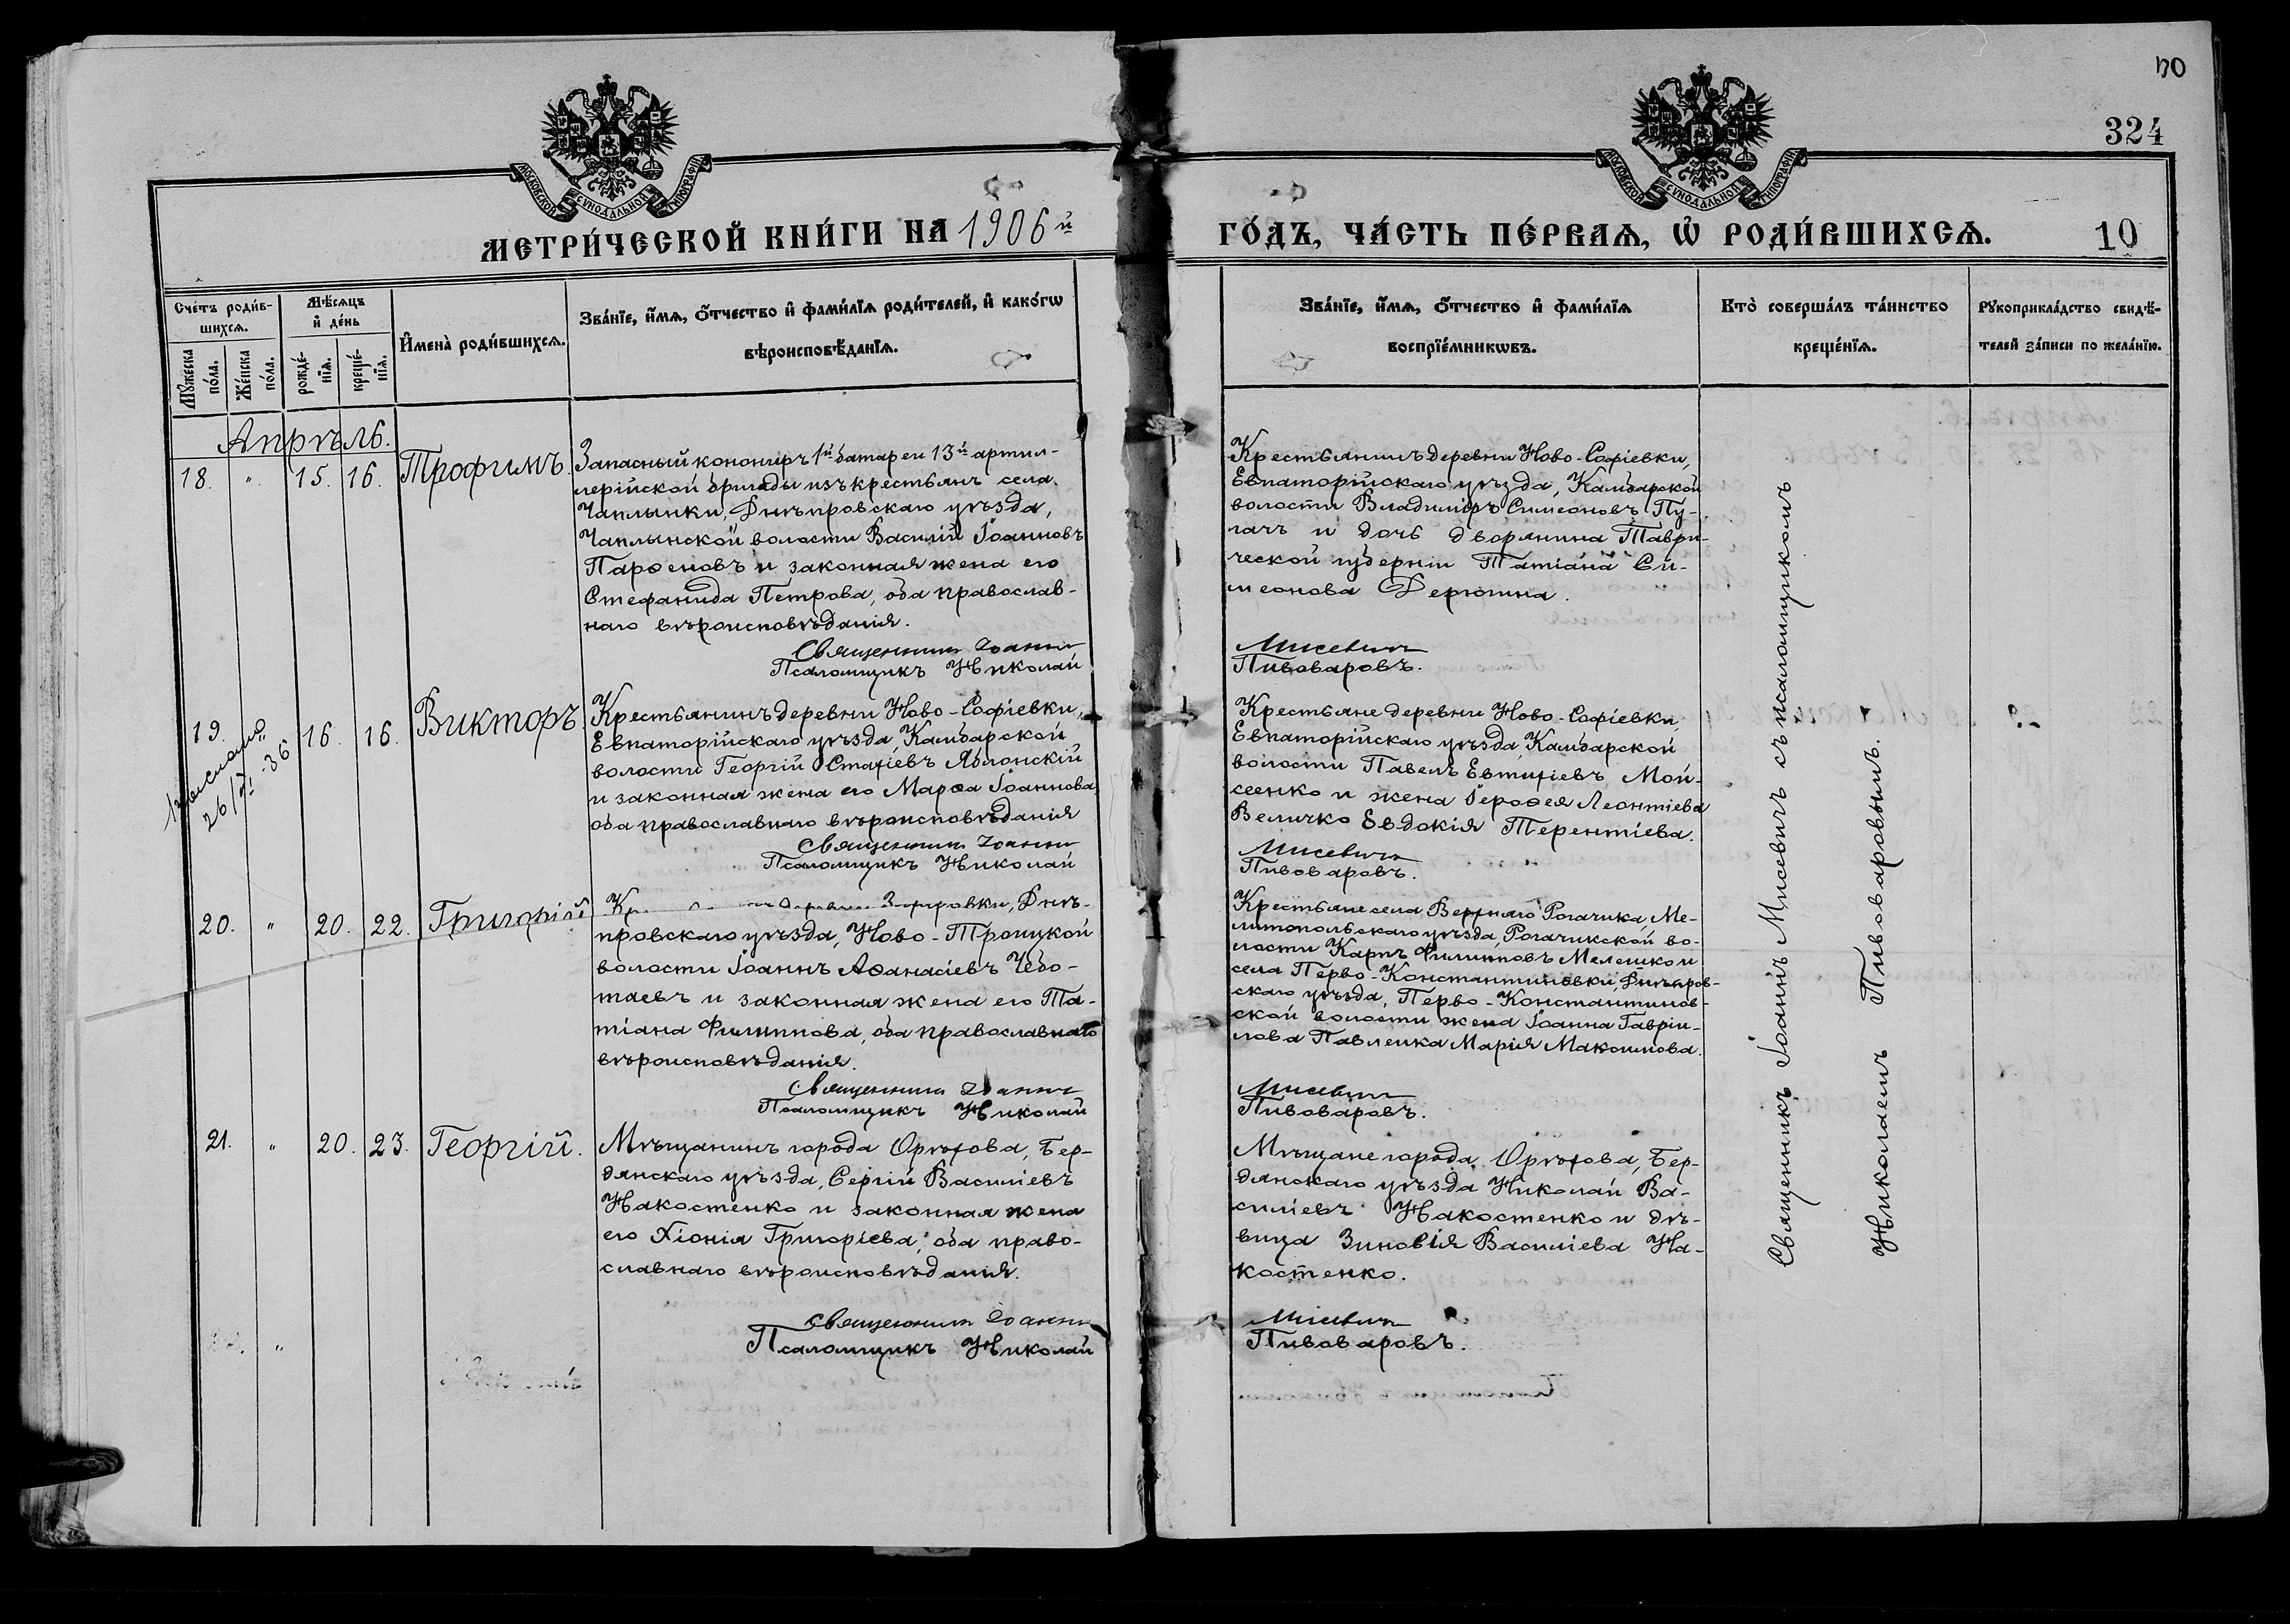 70
324
МОСКОВСКОЙ СѴНОДАЛЬНОЙ ТИПОГРАФІИ
МОСКОВСКОЙ СѴНОДАЛЬНОЙ ТИПОГРАФІИ
МЕТРИ́ЧЕСКОЙ КНИ́ГИ НА 1906й
ГО́ДЪ, ЧА́СТЬ ПЕ́РВАѦ, Ѡ҆ РОДИ́ВШИХСѦ.
10
Сче́тъ роди́в-
шихсѧ.
Мꙋ́жеска
по́ла.
Же́нска
по́ла.
Мѣ́сѧцъ
и҆ де́нь
рожде́-
нїѧ.
креще́-
нїѧ.
И҆мена̀ роди́вшихсѧ.
Зва́нїе, и҆́мѧ, ѻ҆́тчество и҆ фами́лїѧ роди́телей, и҆ како́гѡ
вѣроисповѣ́данїѧ.
Зва́нїе, и҆́мѧ, ѻ҆́тчество и҆ фами́лїѧ
воспрїе́мникѡвъ.
Кто̀ соверша́лъ та́инство
креще́нїѧ.
Рꙋкоприкла́дство свидѣ́-
телей за́писи по жела́нїю.
Апрѣль.
18. " 15. 16. Трофимъ.
Запасный конониръ 1й батареи 13й артил-
лерійской бригады изъ крестьянъ села
Чаплынки, Днѣпровскаго уѣзда,
Чаплынской волости Василій Іоанновъ
Парѳеновъ и законная жена его
Стефанида Петрова, оба православ-
наго вѣроисповѣданія.
Священникъ Іоаннъ
Псаломщикъ Николай
Крестьянинъ деревни Ново-Софіевки,
Евпаторійскаго уѣзда, Камбарской
волости Владиміръ Симеоновъ Пу-
гачъ и дочь дворянина Таври-
ческой губерніи Татіана Си-
меонова Дерюгина.
Мисевичъ
Пивоваровъ.
19. " 16. 16. Викторъ.
26/VI-36
Крестьянинъ деревни Ново-Софіевки,
Евпаторійскаго уѣзда, Камбарской
волости Георгій Стахіевъ Яблонскій
и законная жена его Марѳа Іоаннова,
оба православнаго вѣроисповѣданія
Священникъ Іоаннъ
Псаломщикъ Николай
Крестьяне деревни Ново-Софіевки,
Евпаторійскаго уѣзда, Камбарской
волости Павелъ Евтихіевъ Мой-
сеенко и жена Іероѳея Леонтіева
Величко Евдокія Терентіева.
Мисевичъ
Пивоваровъ.
20. " 20. 22. Григорій
деревни Днѣ-
провскаго уѣзда, Ново-Троицкой
волости Іоаннъ Аѳанасіевъ Чебо-
таевъ и законная жена его Та-
тіана Филиппова, оба православнаго
вѣроисповѣданія.
Священникъ Іоаннъ
Псаломщикъ Николай
Крестьяне села Верхняго Рогачика, Ме-
литопольскаго уѣзда, Рогачикской во-
лости Карпъ Филипповъ Мелешко и
села Перво-Константиновки, Днѣпров-
скаго уѣзда, Перво-Константинов-
ской волости жена Іоанна Гавріи-
лова Павленка Марія Максимова.
Мисевичъ
Пивоваровъ.
21. " 20. 23. Георгій.
Мѣщанинъ города Орѣхова, Бер-
дянскаго уѣзда, Сергій Василіевъ
Накостенко и законная жена
его Хіонія Григоріева, оба право-
славнаго вѣроисповѣданія.
Священникъ Іоаннъ
Псаломщикъ Николай
Мѣщане города Орѣхова, Бер-
дянскаго уѣзда Николай Ва-
силіевъ Накостенко и дѣ-
вица Зиновія Василіева На-
костенко.
Мисевичъ
Пивоваровъ.
Священникъ Іоаннъ Мисевичъ съ псаломщикомъ
Николаемъ Пивоваровымъ.